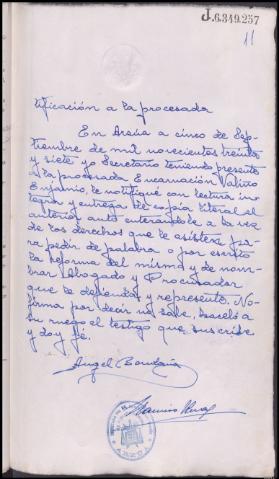 J.6.349.257
11
tificación a la procesada
En Arzúa a cinco de Sep-
tiembre de mil novecientos treinta
y siete yo Secretario teniendo presente
a la procesada Encarnación Valiño
le notifiqué con lectura ín-
tegra y entrega de copia literal el
anterior auto enterándole a la vez
de los derechos que le asisten pa-
ra pedir de palabra o por escrito
la reforma del mismo y de nom-
brar Abogado y Procurador
que le defienda y represente. No
firma por decir no sabe, hácelo a
su ruego el testigo que suscribe
y doy fé.
Angel
Ramiro